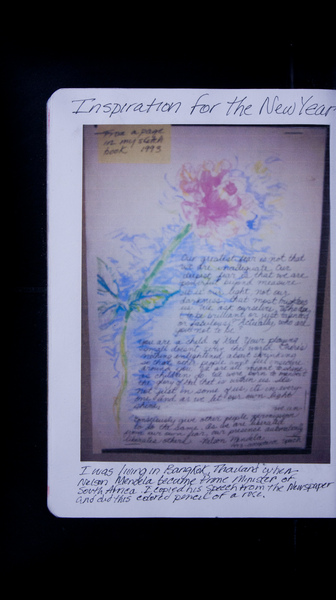 Inspiration for the New Year
From a page
in my sketch
book 1993
Our greatest fear is not that
we are inadequate. Our
deepest fear is that we are
powerful beyond measure
It is our light not our
darkness that most frightens
us. We ask ourselves, Who am I to
be brilliant
Actually who are
you not to be?
You are a child of God Your playing
small doesn't serve the world.
nothing enlightened about shrinking
so that other people won't feel
around you. We are all meant to shine
as children do. We were born to manifest
the glory of God that is within us. Its
not just in some of us its in every
one and as we let our own light
shine
we un
consciously give other people permission
to do the same. As we are liberated
from our own fear, our presence automatically
liberates others. Nelson Mandela
I was living in Bangkok, Thailand when
Nelson Mendela became Prime Minister of
South Africa I copied his speech from the Newspaper
and did this colored pencil of a rose.